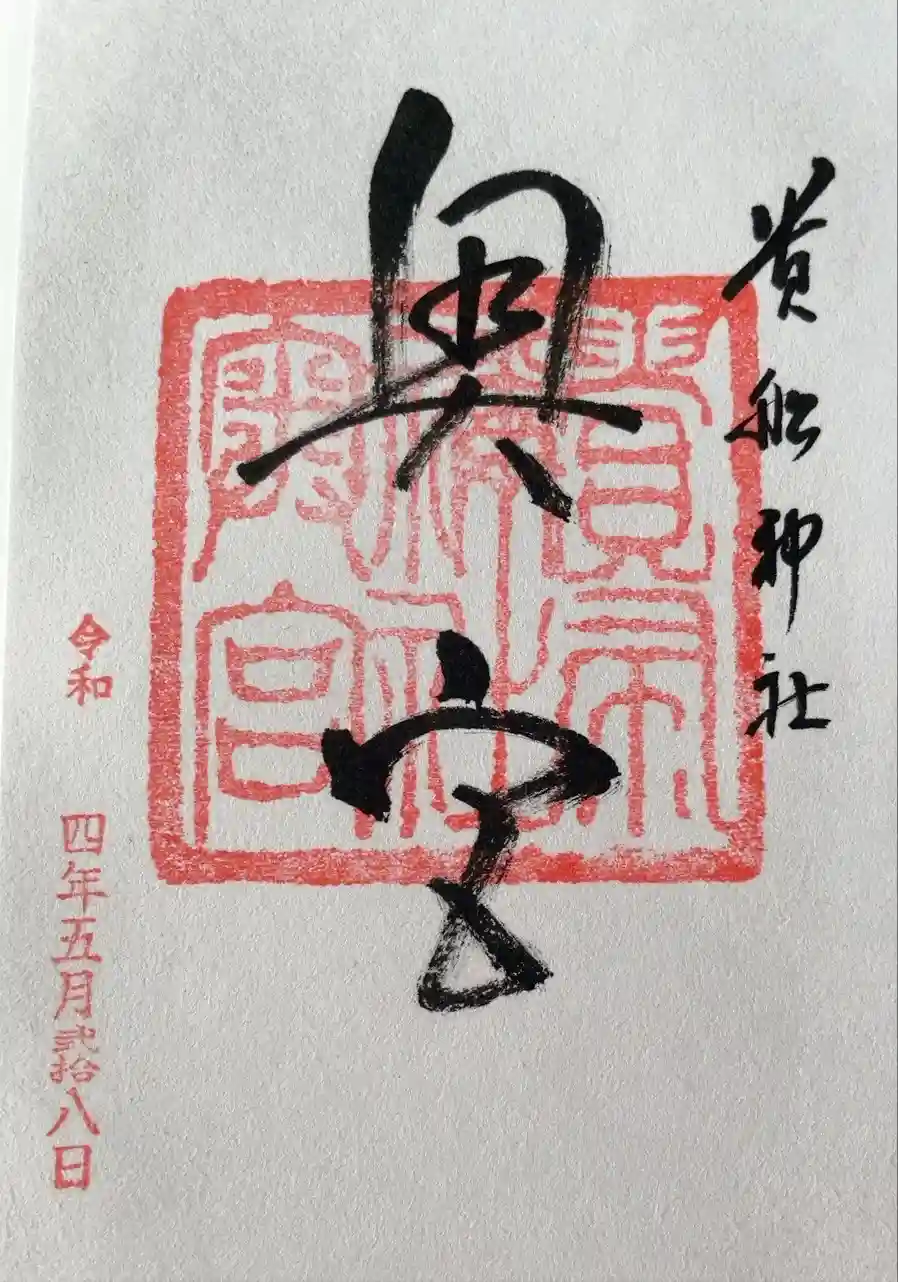 貴船神社
奥宮
貴布
祢社
奥宮
令和四年五月弐拾八日